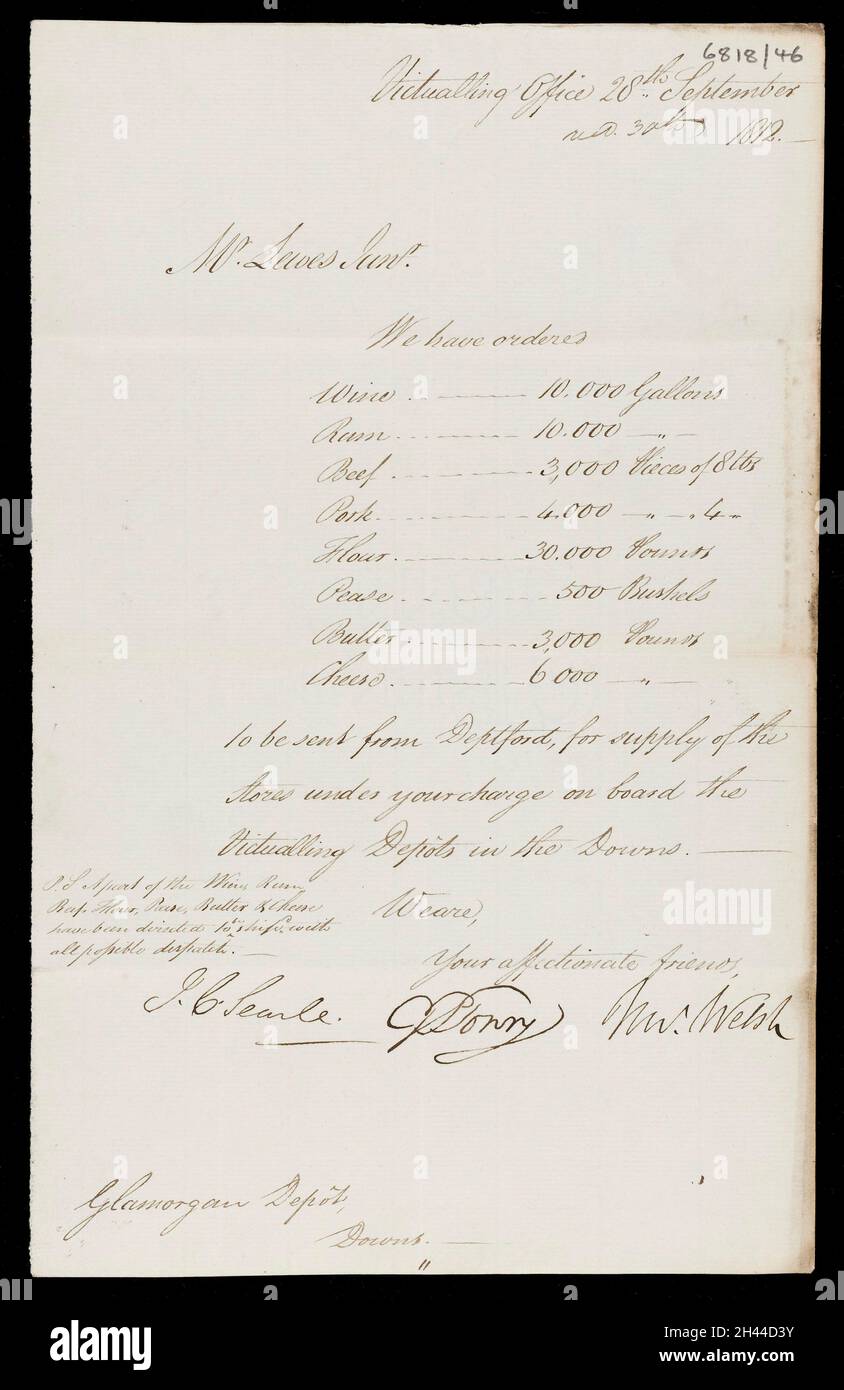 6818/46
Victualling Office 28th September
recd. 30th 1812.
Mr. Lewes Junr.
We have ordered
Wine 10.000 Gallons
Rum 10.000 "
Beef 3,000 Pieces of 8 lbs
Pork 4.000 " " 4 "
Flour 30.000 Pounds
Pease 500 Bushels
Butter 3,000 Pounds
Cheese 6000 "
to be sent from Deptford, for supply of the
Stores under your charge on board the
Victualling Depôts in the Downs.
P.S. A part of the Wine, Rum,
Beef, Flour, Pease, Butter & Cheese
have been directed to be shipd. with
all possible despatch.
We are,
Your affectionate friends,
J. C. Searle.
Welsh
Glamorgan Depôt,
Downs.
"
alamy
Image ID: 2H44D3Y
www.alamy.com